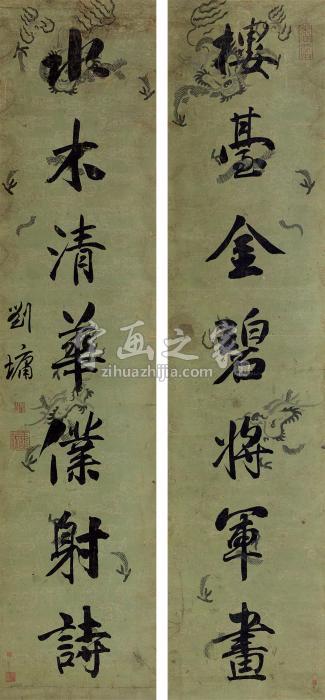 樓臺金碧將軍畫
水木清華僕射詩
劉墉
字画之家
zihuazhijia.com